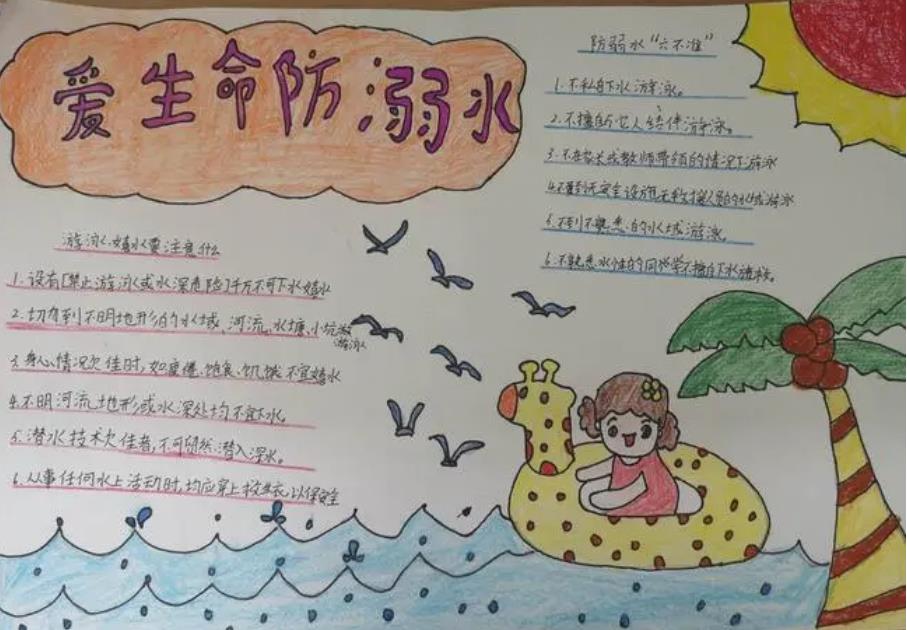 爱生命防溺水
防溺水“六不准”
1.不私自下水游泳。
2.不擅自与他人结伴游泳。
3.不在家长或教师带领的情况下游泳
4.不到无安全设施无救援人员的水域游泳
5.不到不熟悉的水域游泳。
6.不熟悉水性的同学不擅自下水施救。
游泳、嬉水要注意什么
1.设有[禁止游泳或水深危险]千万不可下水嬉水
2.切勿到不明地形的水域、河流、水塘、小坑
游泳
3.身心情况欠佳时,如疲倦、饱食、饥饿不宜嬉水
4.不明河流地形或水深处均不宜下水。
5.潜水技术欠佳者,不可贸然潜入深水。
6.从事任何水上活动时,均应穿上救生衣,以保安全